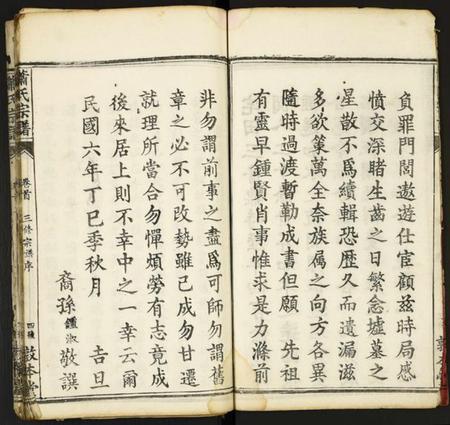 負罪門閭遨遊仕宦顧茲時局感
憤交深睹生齒之日繁念墟墓之
星散不爲續輯恐歷久而遺漏滋
多欲策萬全奈族属之向方各異
隨時過渡暫勒成書但願　先祖
有靈早鍾賢肖事惟求是力滌前
非勿謂前事之盡爲可師勿謂舊
章之必不可改勢雖已成勿甘遷
就理所當合勿憚煩勞有志竟成
後來居上則不幸中之一幸云爾
民國六年丁巳季秋月　　吉旦
裔孫鍾淑敬譔
蕭氏宗譜
卷首　三修宗譜序
四種　敦本堂